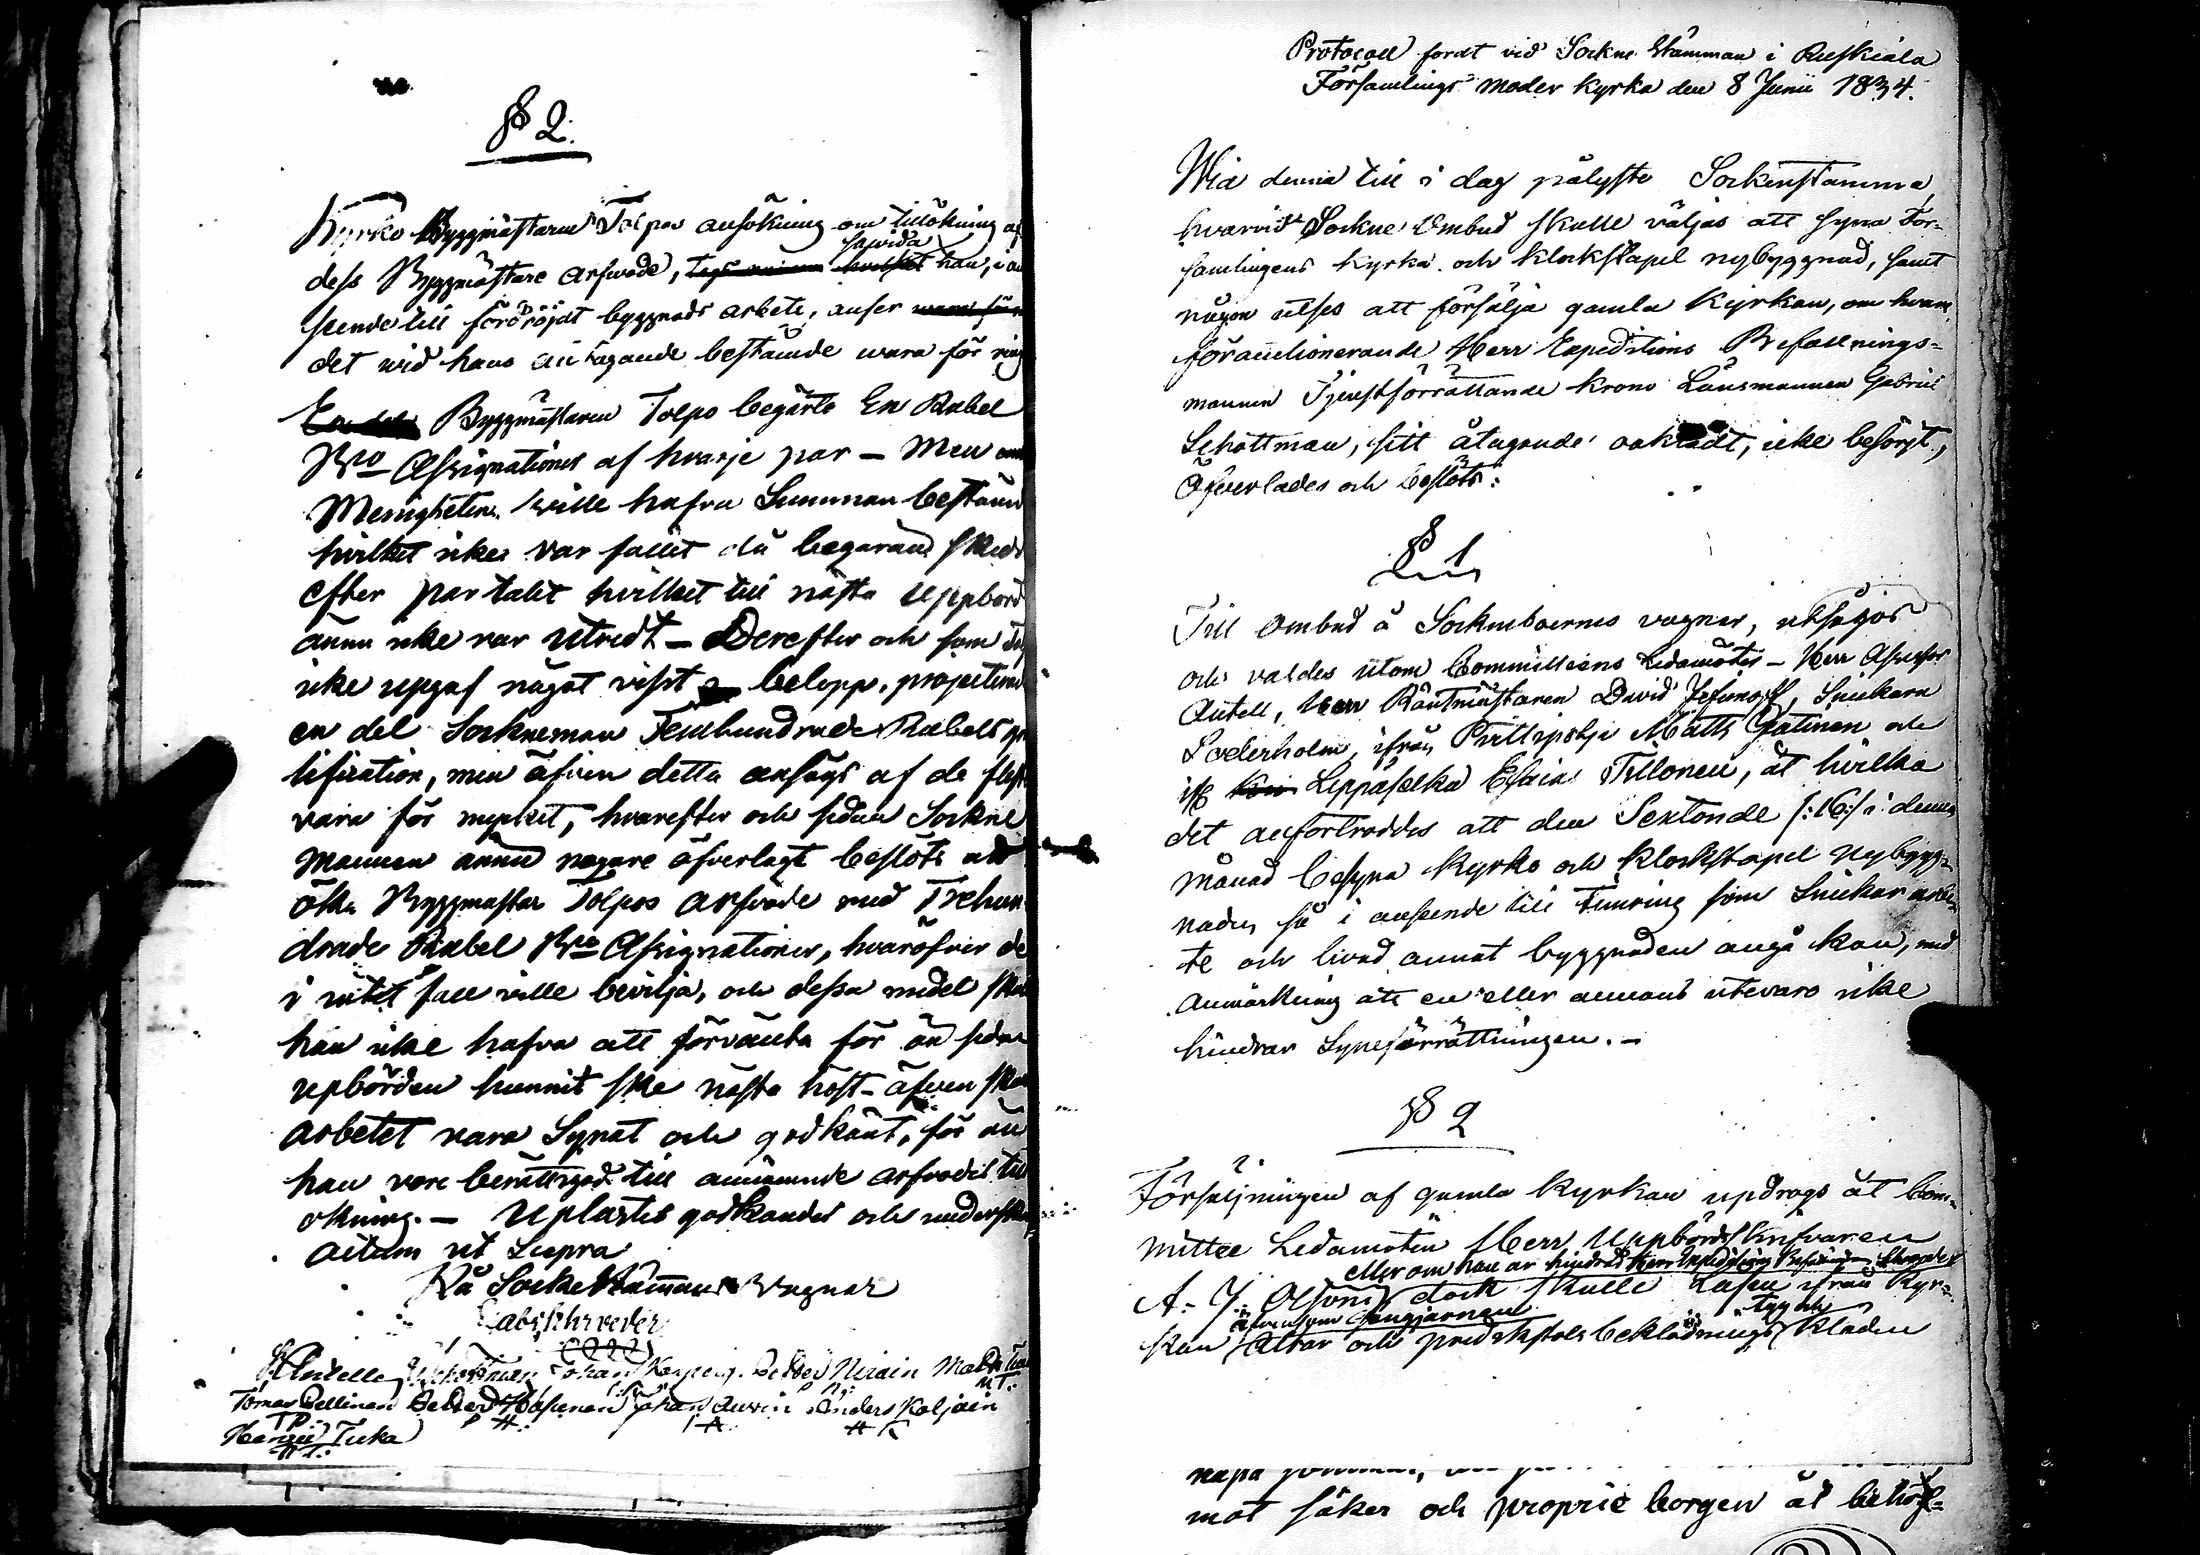 § 2.
Kyrko Byggmästaren Tolpos ansökning om tillökning af
såvida
dess Byggmästare arfwode, han, i an
seende till fördröjdt byggnads arbete, anser
det wid hans antagande bestämde wara för ring
Byggmästaren Tolpo begärte En Rubel
Bco Assignationer af hvarje par – Men
Menigheten wille hafva Summan bestämd
hvilket icke var fallet då begäran skedt
efter par talet hvilket till nästa Uppbörd
ännu icke var utredt – Derefter och som
icke uppgaf något visst belopp, projecterad
en del Sockneman Femhundrade Rubels gra
tification, men äfven detta ansågs af de fleste
vara för mycket, hvarefter och sedan Sockne
mannen ännu nogare öfverlagt beslöts att
öka Byggmästar Tolpos arfvode med Trehun
drade Rubel Bco Assignationer, hvaröfver de
i intet fall ville bevilja, och dessa medel skall
han icke hafva att förvänta för än sedan
upbörden hunnit ske nästa höst – äfven skall
arbetet vara Synat och godkänt, för än
han vore berättigad till arfvodes till
ökning. – Uplästes godkändes och underskr
actum ut Supra
På Sockne Stämmans Vägnar
Gab: Schrveder
Johan Petter Hirain Matts
Tomas Pellinen Petter Hosenen Johan Anders Koljoin
T P P H: A
Tuka
Protocoll fördt vid Sockne Stämman i Ruskiala
Församlings moder kyrka den 8 Junii 1834.
Wid denna till i dag pålyste Sockenstämma,
hvarvid Sockne Ombud skulle väljas att syna För-
samlingens kyrka och klockstapel nybyggnad, samt
någon utses att försälja gamla Kyrkan, om hvars
förauctionerande Herr Expeditions Befallnings-
mannen Tjenstförrättande krono Länsmannen Gabriel
Schottman, sitt åtagande oaktadt, icke besörjt,
Öfverlades och beslöts:
§ 1
Till Ombud å Sockneboernes vägnar, utsågos
och valdes utom Committeens Ledamöter – Herr Assessor
Antell, Herr Räntmästaren David Jefimoff, Snickarn
Soderholm, ifrån Matts Gatinen och
Leppäselkä Esaias Tillonen, åt hvilka
det anförtroddes att den Sextonde /:16:/ i denna
månad besyna Kyrko och klockstapel Nybygg-
naden så i anseende till Timring som Snickar arbe-
te och hvad annat byggnaden angå kan, med
anmärkning att en eller annans utevaro icke
hindrar Syneförrättningen. –
§ 2
Försäljningen af gamla kyrkan updrogs åt Com-
mittee Ledamoten Herr Uppbördsskrifvaren
eller om han är hindrad Herr Expeditions Schroeder
A. J. Olsoni dock skulle Låsen ifrån Kyr-
äfvensom gångjärnen tyg och
kan Altar och predikstols beklädnings kläden
mot säker och proprie borgen åt behöf-